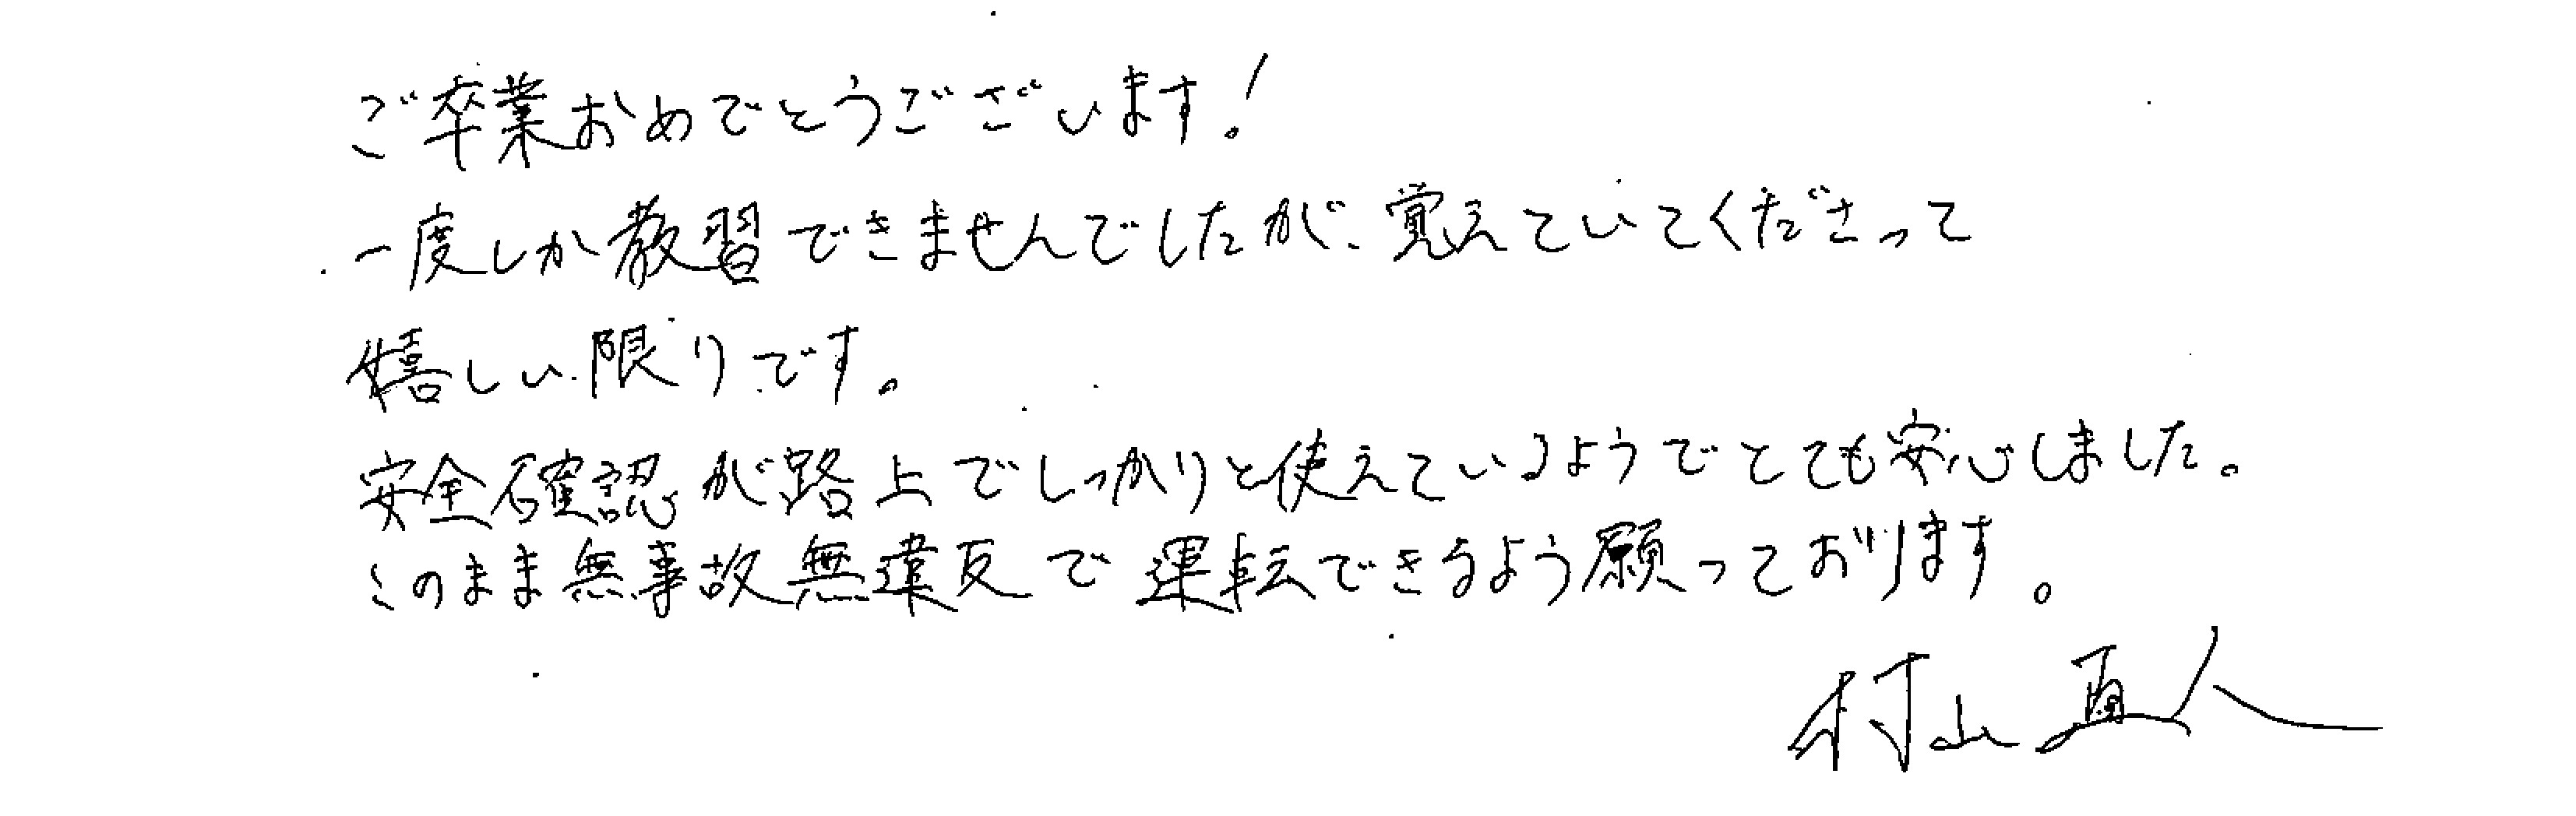 ご卒業おめでとうございます!
一度しか教習できませんでしたが、覚えていてくださって
嬉しい限りです。
安全確認が路上でしっかりと使えているようでとても安心しました。
このまま無事故無違反で運転できるよう願っております。
村山直人